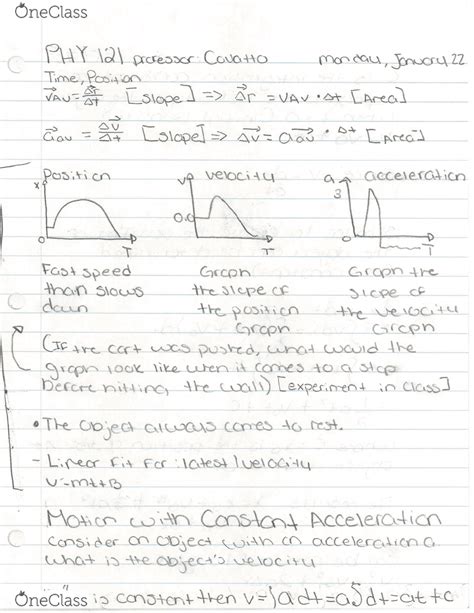 OneClass
PHY 121 professor Cavatto monday, January 22
Time, Position
v⃗av = Δr⃗/Δt [Slope] => Δr⃗ = vAv · Δt [Area]
a⃗av = Δv⃗/Δt [Slope] => Δv⃗ = a⃗av · Δt [Area]
Position velocity acceleration
x v a
3
0.0
0 0 0
T T T
Fast speed Graph Graph the
than slows the slope of slope of
down the position the velocity
Graph Graph
(If the cart was pushed, what would the
graph look like when it comes to a stop
before hitting the wall) [experiment in class]
• The object always comes to rest.
- Linear Fit For: latest/velocity
v=mt+B
Motion with Constant Acceleration
consider an object with an acceleration a
what is the object's velocity
OneClass is constant then v=∫adt=a∫dt=at+c